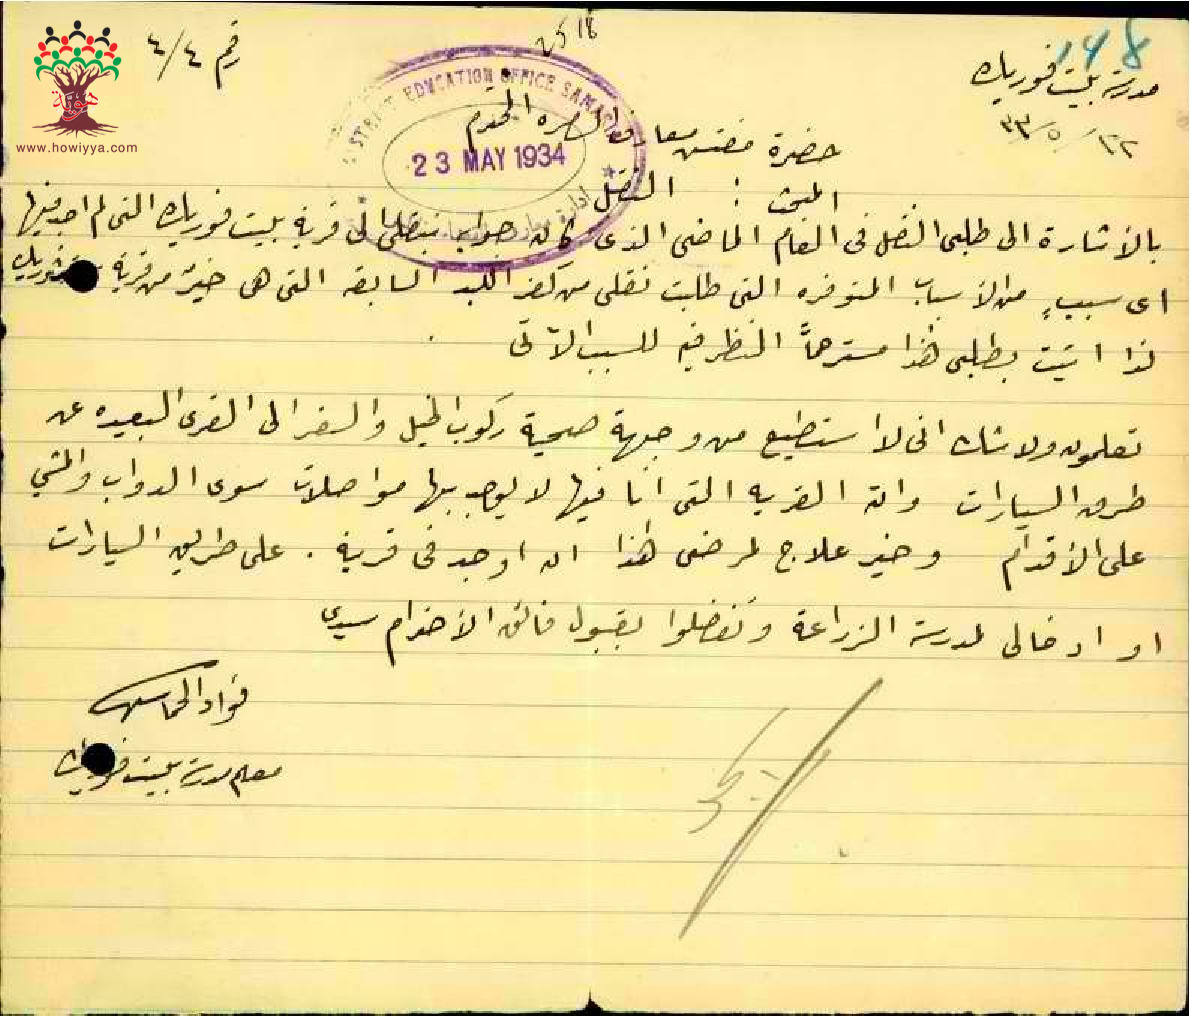 148
2518
رقم ٤/٤
مدرسة بيت فوريك
٢٢/٥/٣٣
هوية
www.howiyya.com
DISTRICT EDUCATION OFFICE SAMARIA
23 MAY 1934
حضرة مفتش معارف السامره المحترم
المبحث : النقل
بالاشارة الى طلبي النقل في العام الماضي الذي كان جوابه بنقلي الى قرية بيت فوريك التي لم اجد فيها
اي سبب من الاسباب المتوفره التي طلبت نقلي من كفر اللبد السابقه التي هي خير من قرية بيت فوريك
لذا اتيت بطلبي هذا مسترحماً النظر فيه للسبب الآتي
تعلمون ولا شك اني لا استطيع من وجهة صحية ركوب الخيل والسفر الى القرى البعيده عن
طرق السيارات وان القريه التي انا فيها لا يوجد بها مواصلات سوى الدواب والمشي
على الأقدام وخير علاج لمرضي هذا ان اوجد في قرية . على طريق السيارات
او ادخالي لمدرسة الزراعة وتفضلوا بقبول فائق الاحترام سيدي
فؤاد
معلم مدرسة بيت فوريك